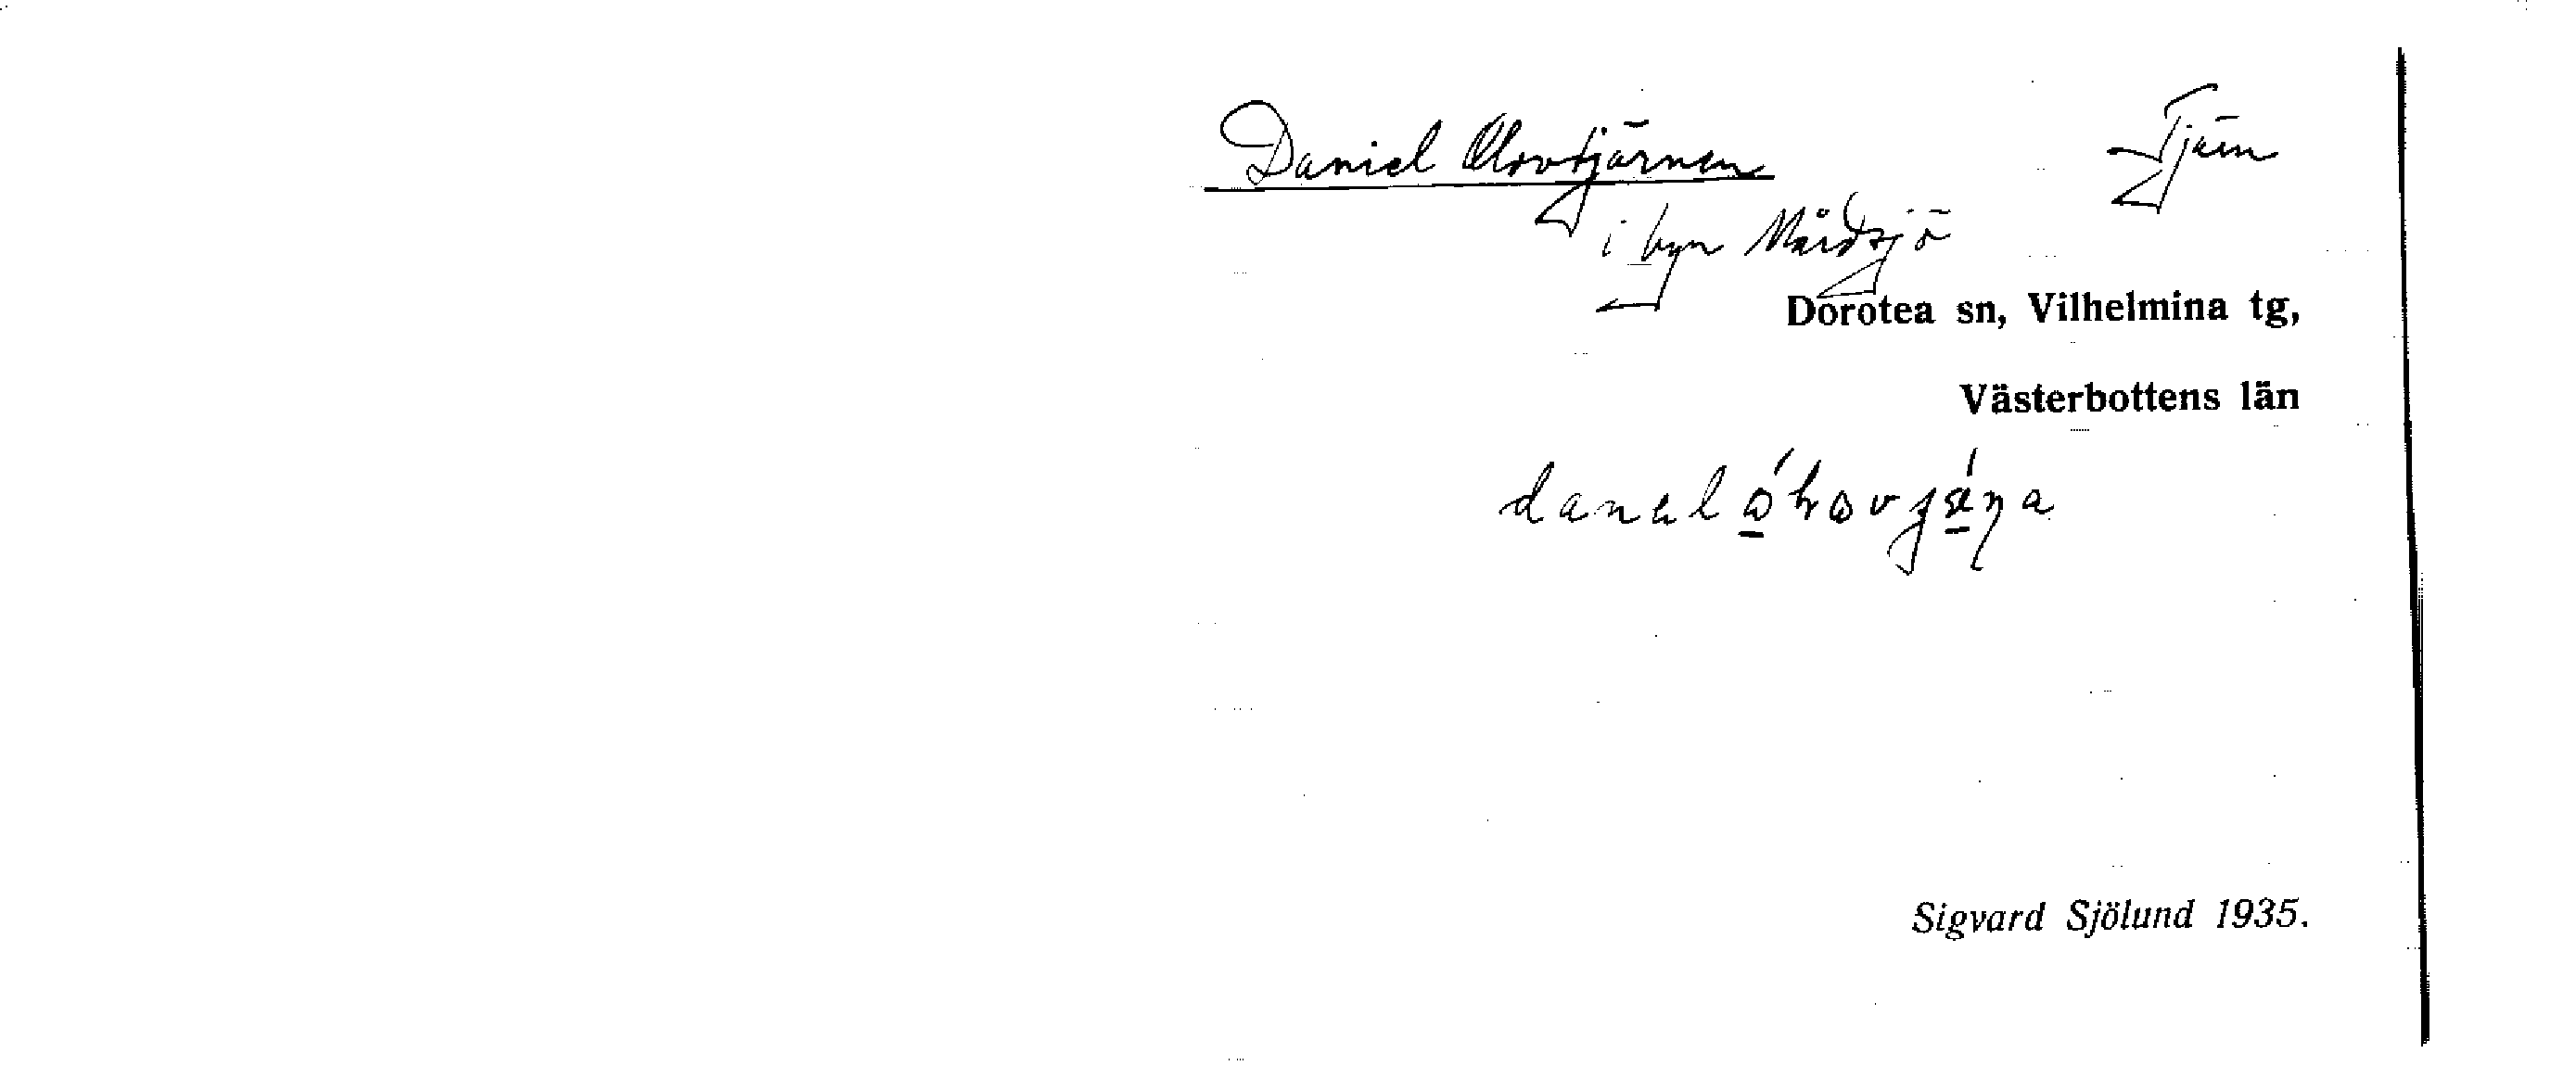 Daniel Olovtjärnen Tjärn
i byn Mårdsjö
Dorotea sn, Vilhelmina tg,
Västerbottens län
Sigvard Sjölund 1935.